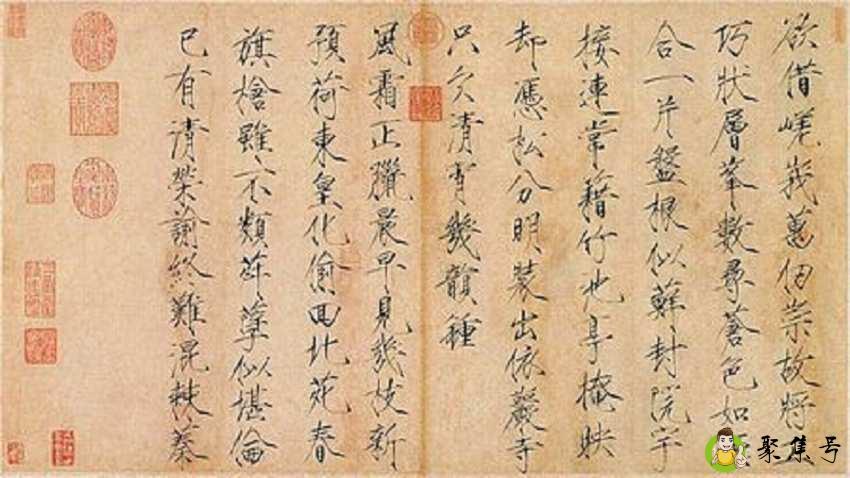 欲借嵯峩萬仞崇故將
巧狀層峯數尋蒼色如
合一片盤根似蘚封院宇
接連常籍竹池亭掩映
却憑松分明裝出依巖寺
只欠清宵幾韻鍾
風霜正臘晨早見幾枝新
預荷東皇化偷回北苑春
旗槍雖不類荈孽似堪倫
已有清榮諭終難混棘蓁
聚集号